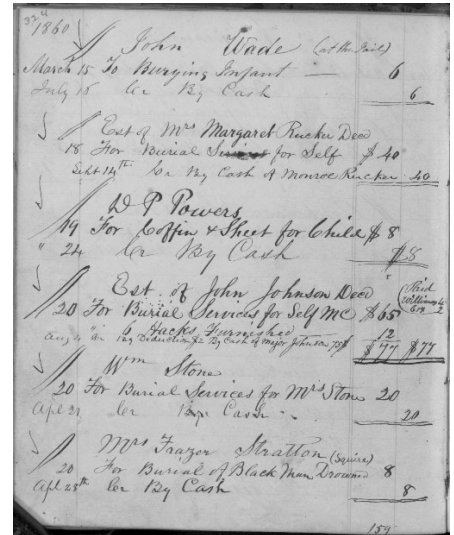 1860
John Wade (at the Jail)
March 15 To Burying Infant — 6
July 18 Cr By Cash 6
Est of Mrs Margaret Rucker Decd
18 For Burial for Self $ 40
Sept 14th Cr By Cash of Monroe Rucker 40
D P Powers
19 For Coffin & Sheet for Child $ 8
" 24 Cr By Cash $8
Est. of John Johnson Decd
20 For Burial Services for Self MC $65
6 Hacks Furnished 12
By Cash of Major Johnson 75 $ $77 $77
Wm Stone
20 For Burial Services for Mrs Stone 20
Apl 21 Cr By Cash 20
Mrs Frazor Stratton (Squire)
20 For Burial of Black Man Drowned 8
Apl 28th Cr By Cash 8
159